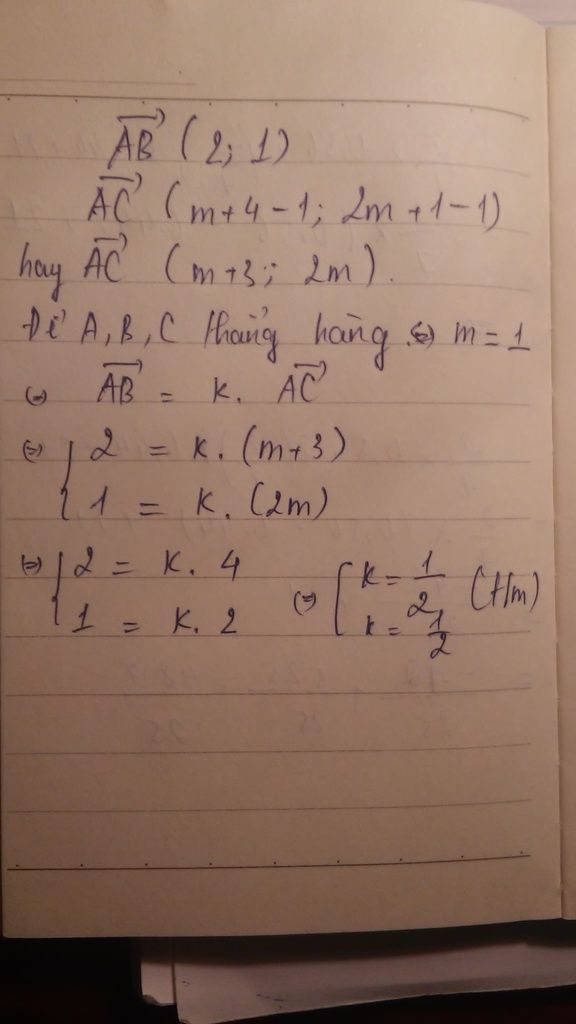 AB (2; 1)
AC (m+4-1; 2m+1-1)
hay AC (m+3; 2m).
Để A, B, C thẳng hàng (=) m = 1
(=) AB = k. AC
(=) { 2 = k. (m+3)
1 = k. (2m)
(=) { 2 = k. 4
1 = k. 2
(=) [ k = 1/2
k = 1/2
(t/m)